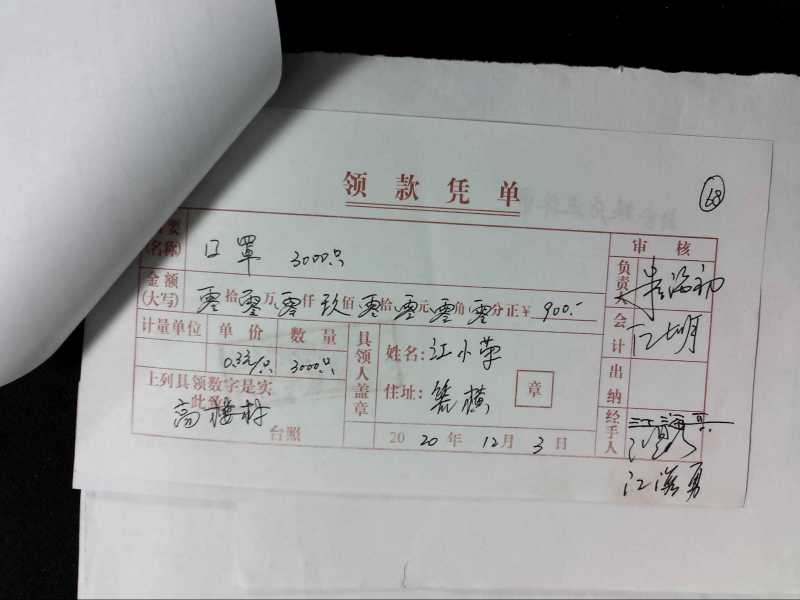 领款凭单
68
要
(名称) 口罩 3000只
审核
金额
(大写) 零拾零万零仟玖佰零拾零元零角零分正¥900.-
负责人
计量单位 单价 数量
0.3元/只 3000只
会计
上列具领数字是实
此致
高楼村
台照
具领人盖章
姓名:江小苹
住址:
章
2020年12月3日
出纳
经手人
江海勇